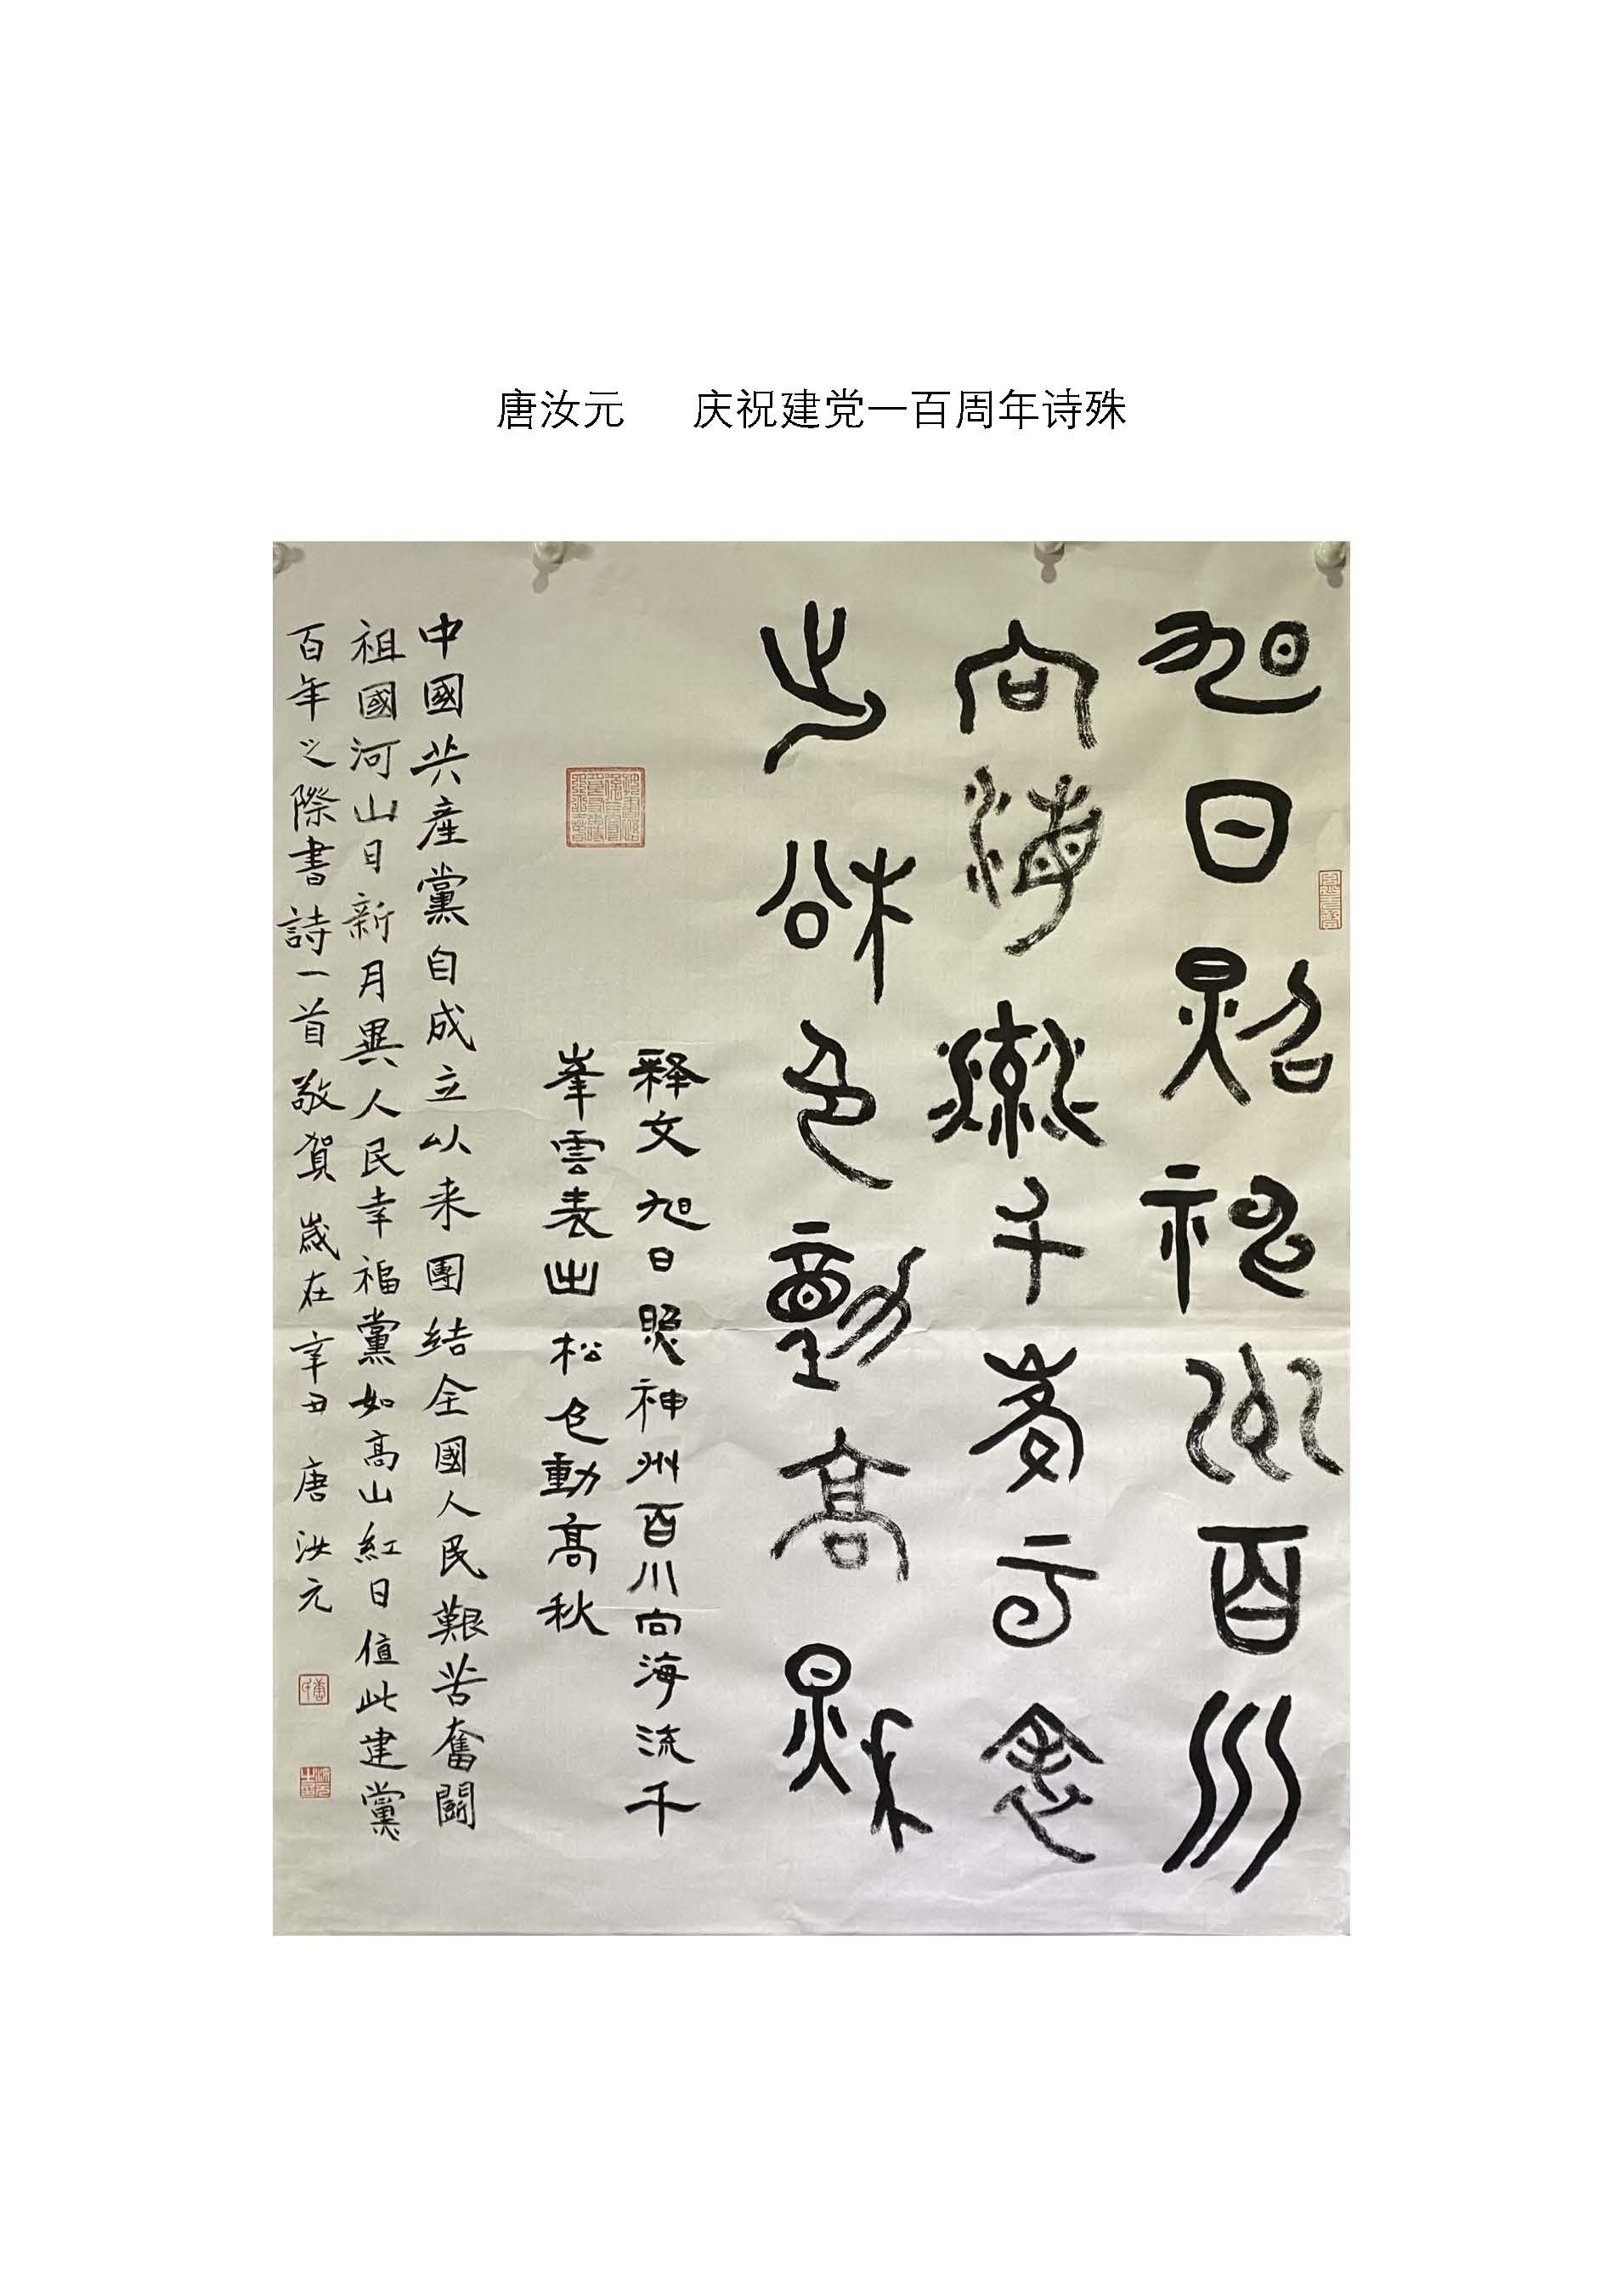 唐汝元 庆祝建党一百周年诗殊
旭日照神州百川
向海流千峯雲
表出松色動高秋
释文旭日照神州百川向海流千
峯雲表出松色動高秋
中國共產黨自成立以来團结全國人民艱苦奮鬪
祖國河山日新月異人民幸福黨如高山紅日值此建黨
百年之際書詩一首敬賀歲在辛丑唐汝元